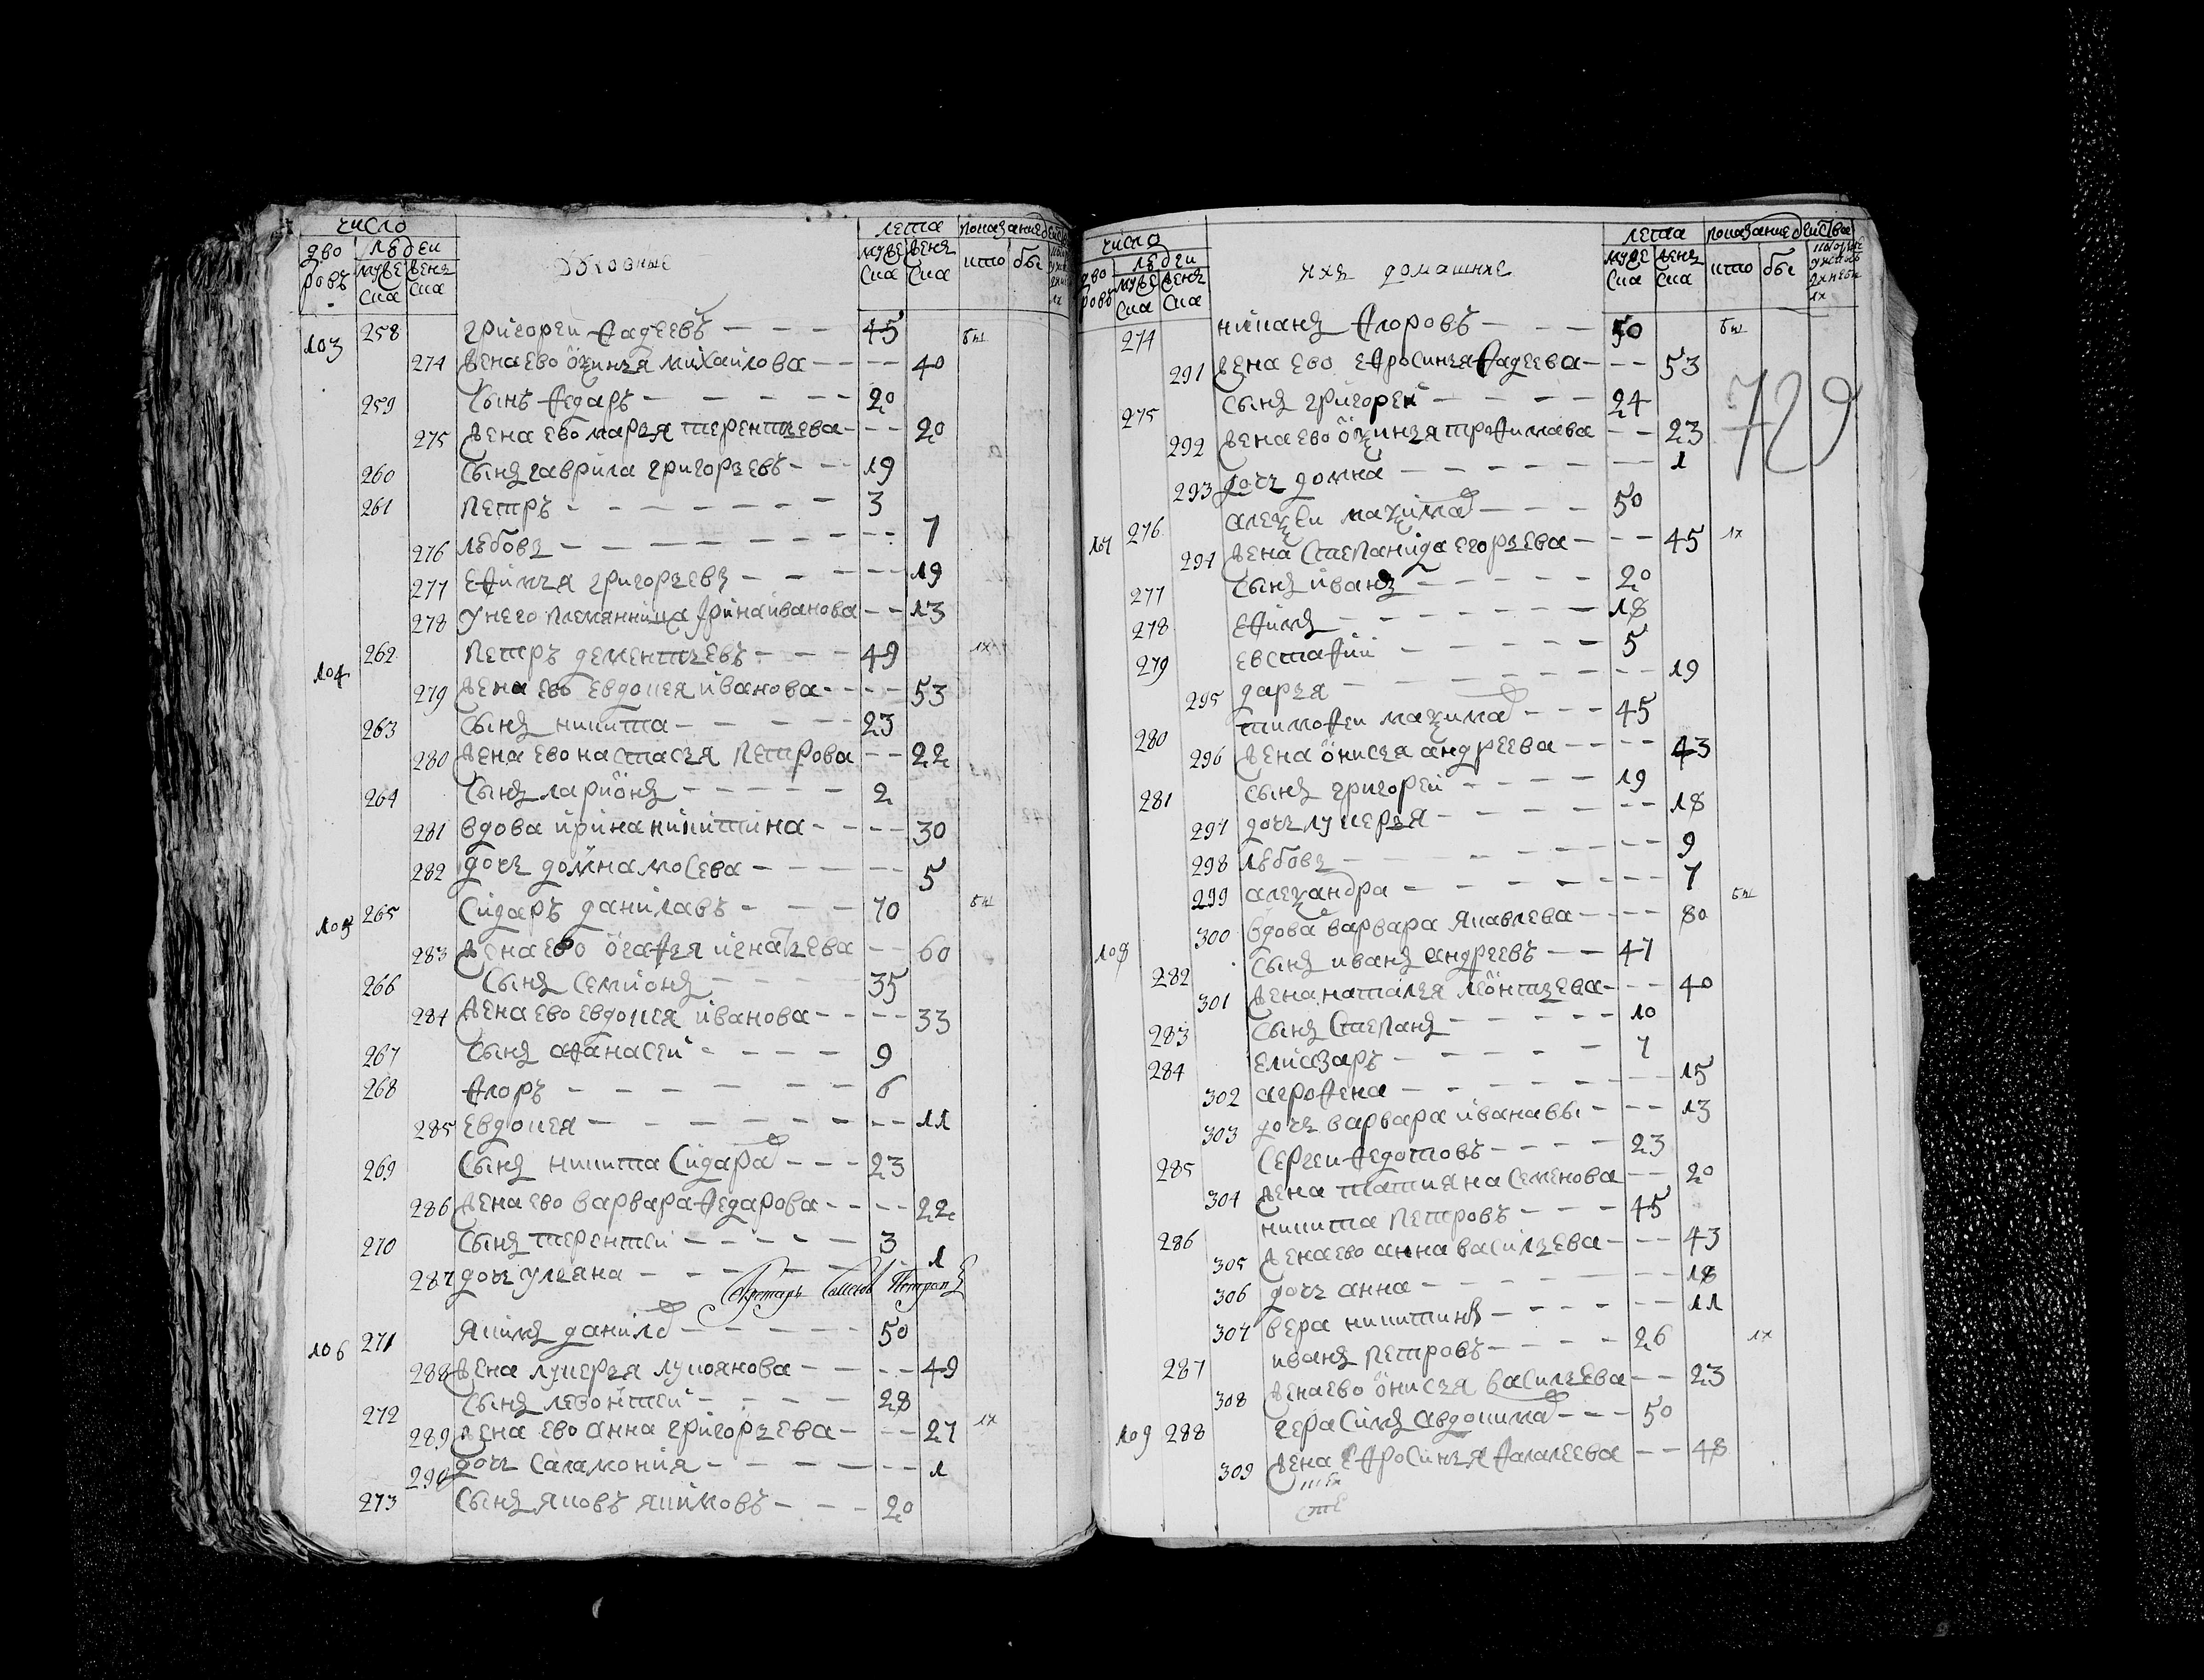 число лета показаниедейства
дво людеи духовные муже женс кто бы
ровъ муже женс ска ска
ска ска
103 258 григореи фадеевъ 45 был
274 жена ево оксинья михаилова 40
259 сынъ федаръ 20
275 жена ево марья терентьева 20
260 сынъ гаврила григорьевъ 19
261 петръ 3
276 любовь 7
277 ефимья григорьевъ 19
278 у него племянница ѳрина иванова 13
104 262 петръ дементьевъ 49 их
279 жена ево евдокея иванова 53
263 сынъ никита 23
280 жена ево настасья петрова 22
264 сынъ ларионъ 2
281 вдова ирина никитина 30
282 дочь домна мосева 5
105 265 сидаръ данилавъ 70 был
283 жена ево огафья игнатьева 60
266 сынъ семионъ 35
284 жена ево евдокея иванова 33
267 сынъ афанасеи 9
268 флоръ 6
285 евдокея 11
269 сынъ никита сидара 23
286 жена ево варвара федарова 22
270 сынъ терентеи 3
287 дочь ульяна 1
106 271 якимъ данило 50
288 жена лукерья лукоянова 49
272 сынъ левонтеи 28
289 жена ево анна григорьева 27 их
290 дочь саламония 1
273 сынъ яковъ якимовъ 20
число лета показаниедейства
дво людеи ихъ домашние муже женс кто бы
ровъ муже женс ска ска
ска ска
274 никанъ флоровъ 50 был
291 жена ево ефросинья фадеева 53
275 сынъ григореи 24
292 жена ево оксинья трфимава 23
729
293 дочь домна 1
107 276 алексеи максимов 50
294 жена степанида егорьева 45 их
277 сынъ иванъ 20
278 ефимъ 18
279 евстафии 5
295 дарья 19
280 тимофеи максимов 45
296 жена онисья андреева 43
281 сынъ григореи 19
297 дочь лукерья 18
298 любовь 9
299 александра 7
108 300 вдова варвара яковлева 80 был
282 сынъ иванъ андреевъ 47
301 жена наталья леонтьева 40
283 сынъ степанъ 10
284 елизаръ 7
302 агрофена 15
303 дочь варвара иванавы 13
285 сергеи федотовъ 23
304 жена татияна семенова 20
286 никита петровъ 45
305 жена ево анна васильева 43
306 дочь анна 18
307 вера никитинъ 11
287 иванъ петровъ 26 их
308 жена ево онисья васильева 23
109 288 герасимъ авдокимов 50
309 жена ефросинья фалалеева 48